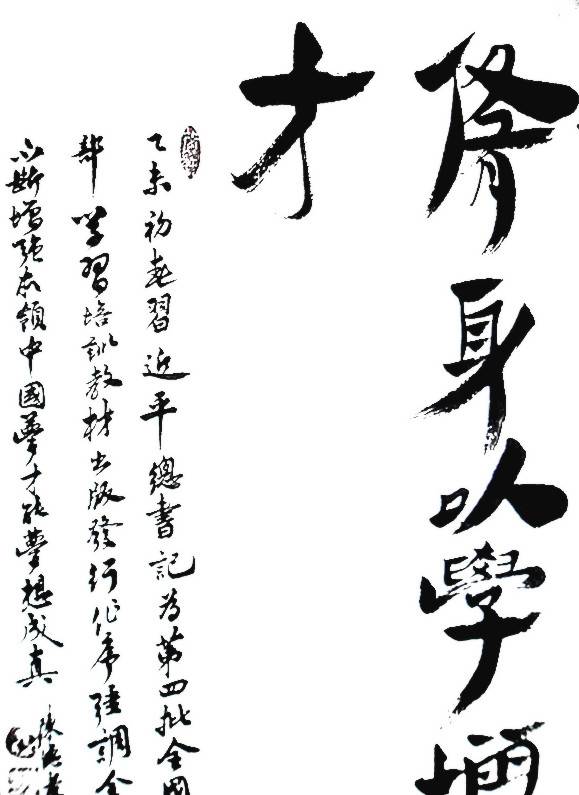 修身以學增
才
乙未初春習近平總書記為第四批全國
部學習培訓教材出版發行作序強調全
不斷增強本領中國夢才能夢想成真